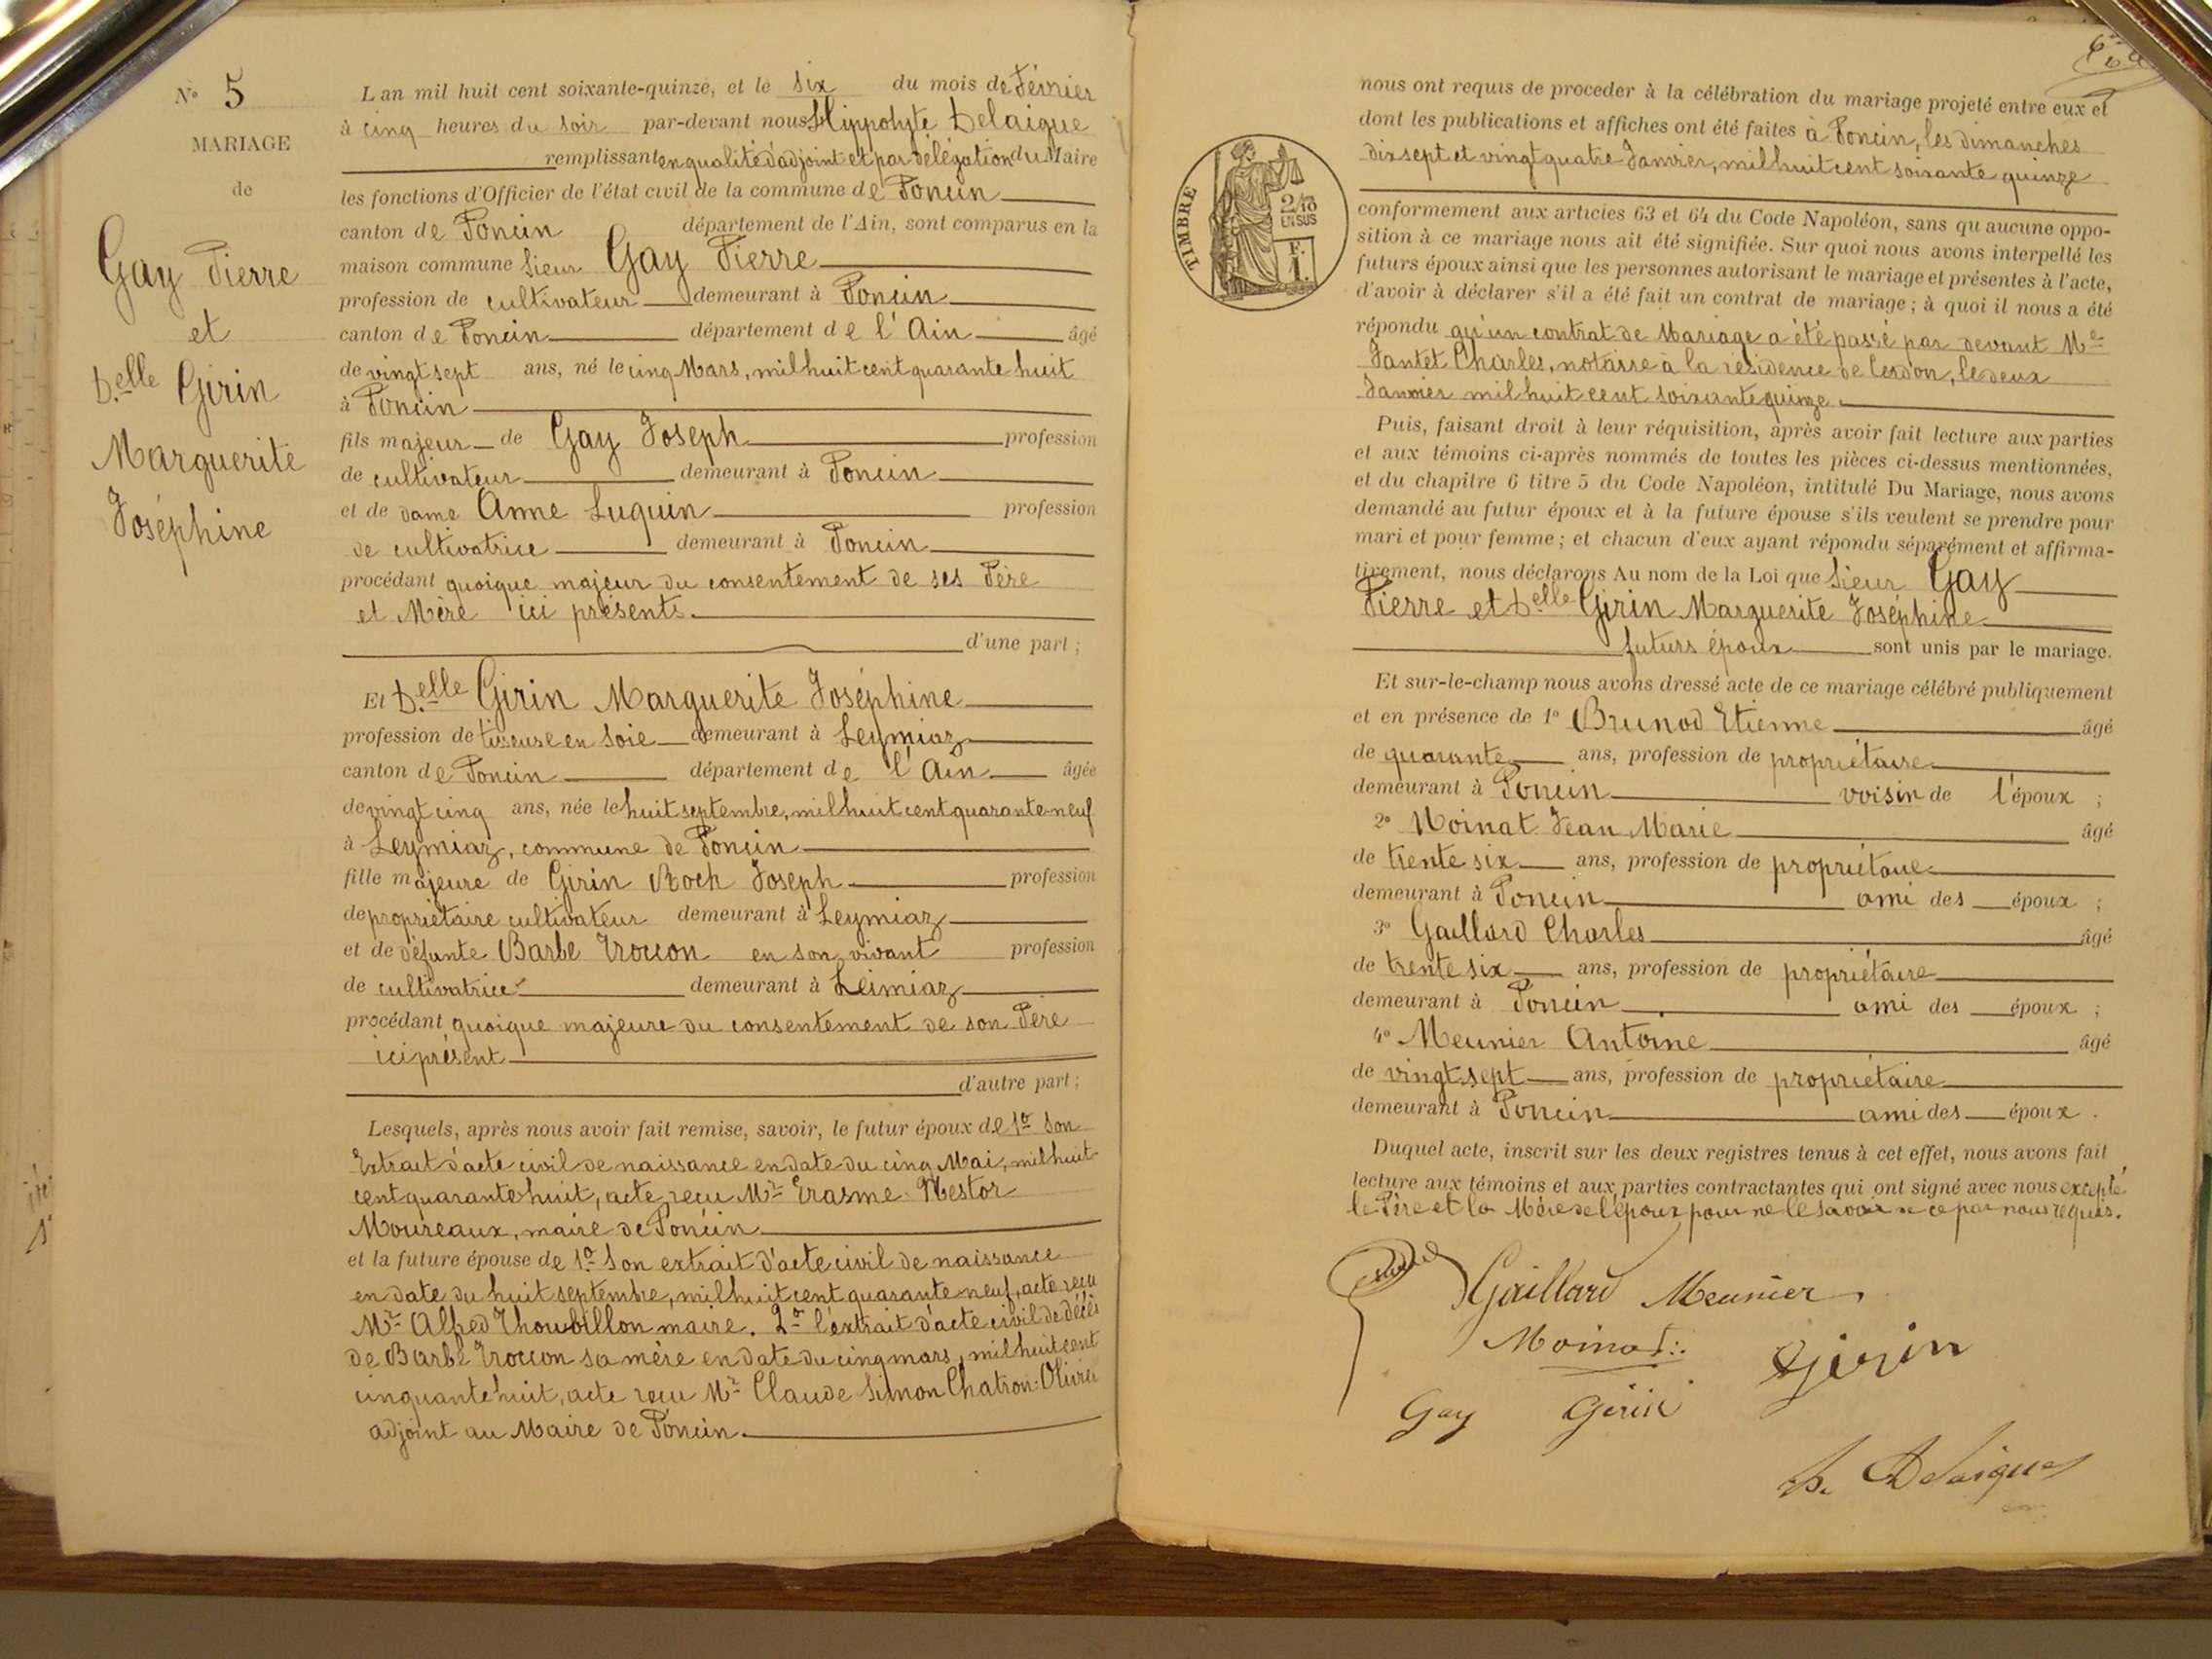 N° 5
MARIAGE
de
Gay Pierre
et
D.elle Girin
Marguerite
Joséphine
L'an mil huit cent soixante-quinze, et le six du mois de Février
à cinq heures du soir par-devant nous Hippolyte Delaigue
remplissant en qualité d'adjoint et par délégation du Maire
les fonctions d'Officier de l'état civil de la commune de Poncin
canton de Poncin département de l'Ain, sont comparus en la
maison commune Sieur Gay Pierre
profession de cultivateur demeurant à Poncin
canton de Poncin département de l'Ain âgé
de vingt sept ans, né le cinq Mars, mil huit cent quarante huit
à Poncin
fils majeur de Gay Joseph profession
de cultivateur demeurant à Poncin
et de dame Anne Luquin profession
de cultivatrice demeurant à Poncin
procédant quoique majeur du consentement de ses Père
et Mère ici présents.
d'une part ;
Et D.elle Girin Marguerite Joséphine
profession de tisseuse en soie demeurant à Leymiaz
canton de Poncin département de l'Ain âgée
de vingt cinq ans, née le huit septembre, mil huit cent quarante-neuf
à Leymiaz, commune de Poncin
fille majeure de Girin Roch Joseph profession
de propriétaire cultivateur demeurant à Leymiaz
et de défunte Barbe Troccon en son vivant profession
de cultivatrice demeurant à Leimiaz
procédant quoique majeure du consentement de son Père
ici présent
d'autre part ;
Lesquels, après nous avoir fait remise, savoir, le futur époux de 1° Son
Extrait d'acte civil de naissance en date du cinq Mai, mil huit
cent quarante huit, acte reçu Mr Erasme Nestor
Moureaux, maire de Poncin
et la future épouse de 1° Son extrait d'acte civil de naissance
en date du huit septembre, mil huit cent quarante neuf, acte reçu
Mr Alfred Thoubillon maire. 2° l'extrait d'acte civil de décès
de Barbe Troccon sa mère en date du cinq mars, mil huit cent
cinquante huit, acte reçu Mr Claude Simon Chatron-Olivier
adjoint au Maire de Poncin.
TIMBRE
2/10
EN SUS
F.
1.
nous ont requis de procéder à la célébration du mariage projeté entre eux et
dont les publications et affiches ont été faites à Poncin, les dimanches
dix sept et vingt quatre Janvier, mil huit cent soixante quinze
conformément aux articles 63 et 64 du Code Napoléon, sans qu'aucune oppo-
sition à ce mariage nous ait été signifiée. Sur quoi nous avons interpellé les
futurs époux ainsi que les personnes autorisant le mariage et présentes à l'acte,
d'avoir à déclarer s'il a été fait un contrat de mariage ; à quoi il nous a été
répondu qu'un contrat de Mariage a été passé par devant Me
Jantet Charles, notaire à la résidence de Cerdon, le deux
Janvier mil huit cent soixante quinze.
Puis, faisant droit à leur réquisition, après avoir fait lecture aux parties
et aux témoins ci-après nommés de toutes les pièces ci-dessus mentionnées,
et du chapitre 6 titre 5 du Code Napoléon, intitulé Du Mariage, nous avons
demandé au futur époux et à la future épouse s'ils veulent se prendre pour
mari et pour femme ; et chacun d'eux ayant répondu séparément et affirma-
tivement, nous déclarons Au nom de la Loi que Sieur Gay
Pierre et D.elle Girin Marguerite Joséphine
futurs époux sont unis par le mariage.
Et sur-le-champ nous avons dressé acte de ce mariage célébré publiquement
et en présence de 1° Brunod Etienne âgé
de quarante ans, profession de propriétaire
demeurant à Poncin voisin de l'époux ;
2° Moinat Jean Marie âgé
de trente six ans, profession de propriétaire
demeurant à Poncin ami des époux ;
3° Gaillard Charles âgé
de trente six ans, profession de propriétaire
demeurant à Poncin ami des époux ;
4° Meunier Antoine âgé
de vingt sept ans, profession de propriétaire
demeurant à Poncin ami des époux.
Duquel acte, inscrit sur les deux registres tenus à cet effet, nous avons fait
lecture aux témoins et aux parties contractantes qui ont signé avec nous excepté
le Père et la Mère de l'époux pour ne le savoir de ce par nous requis.
Gaillard Meunier
Moinat
Girin
Gay Girin
h. Delaigue